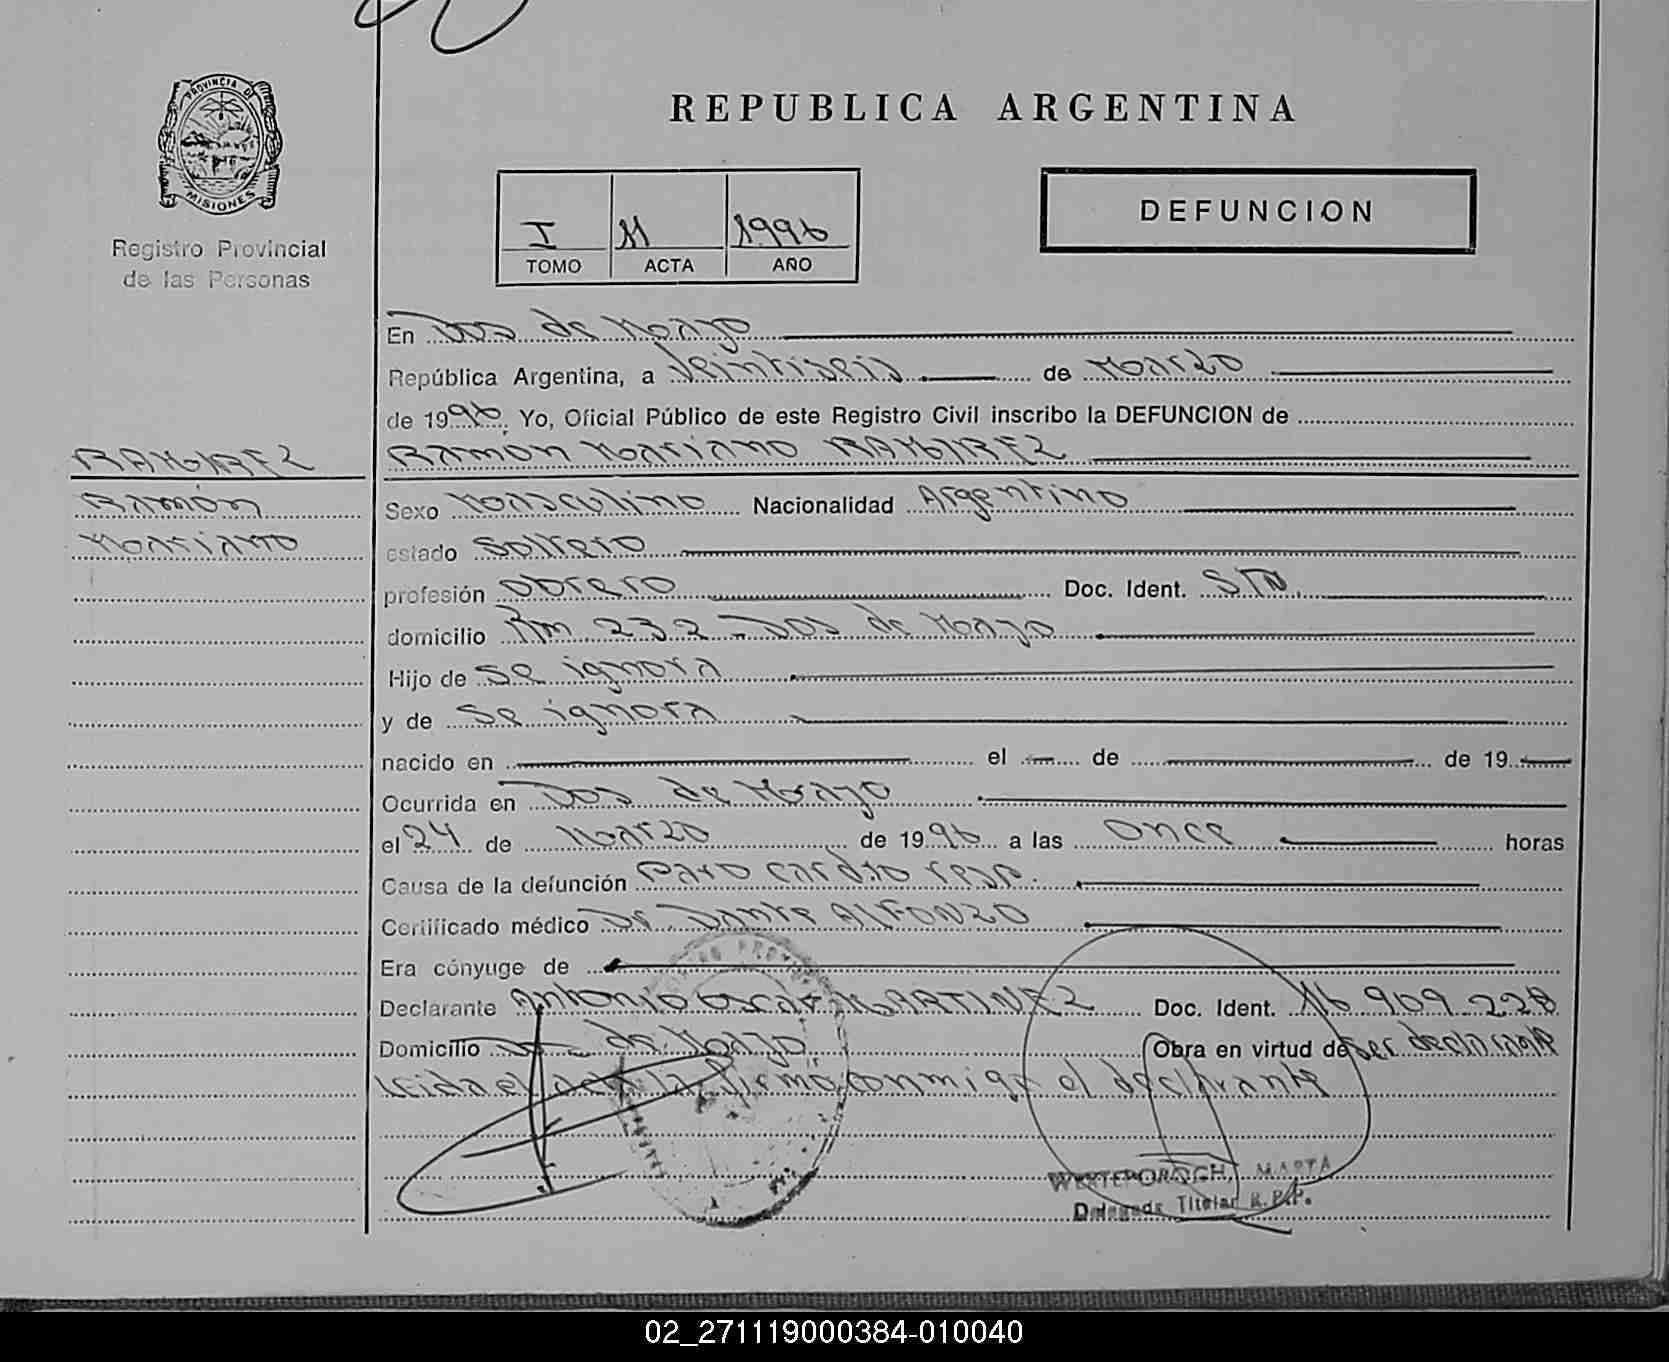 PROVINCIA DE
MISIONES
Registro Provincial
de las Personas
REPUBLICA ARGENTINA
I 11 1996
TOMO ACTA AÑO
DEFUNCION
En Dos de Mayo
República Argentina, a Veintiseis de Marzo
de 1996. Yo, Oficial Público de este Registro Civil inscribo la DEFUNCION de
RAMIREZ
Ramón Mariano RAMIREZ
Ramón
Mariano
Sexo Masculino Nacionalidad Argentino
estado Soltero
profesión Obrero Doc. Ident. S.I.N.
domicilio Km 232 - Dos de Mayo
Hijo de Se ignora
y de Se ignora
nacido en el de de 19
Ocurrida en Dos de Mayo
el 24 de Marzo de 1996 a las Once horas
Causa de la defunción Paro cardio resp.
Certificado médico Dr. Dante ALFONZO
Era cónyuge de
Declarante Antonio Oscar MARTINEZ Doc. Ident. 16 909 228
Domicilio Dos de Mayo. Obra en virtud de Ser declarante
Leida el acta la firma conmigo el declarante
MARTA
Titular R.P.P.
02_271119000384-010040